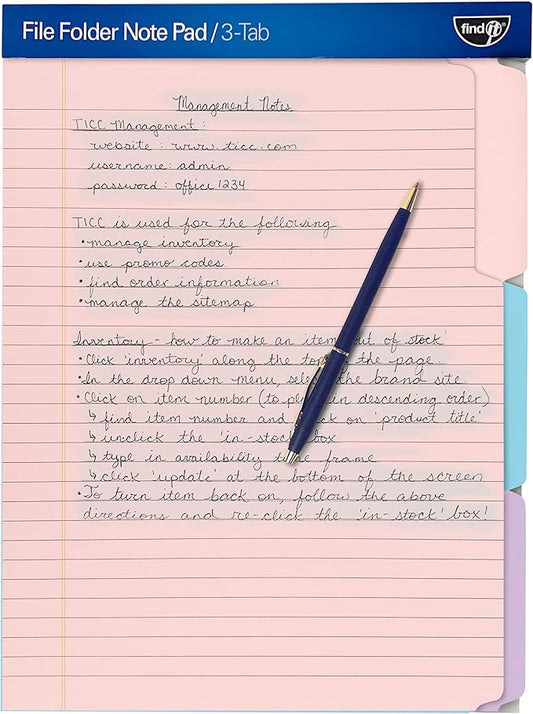 File Folder Note Pad / 3-Tab
find it
Management Notes
TICC Management:
website: www.ticc.com
username: admin
password: office1234
TICC is used for the following
• manage inventory
• use promo codes
• find order information
• manage the sitemap
Inventory - how to make an item out of stock
• Click 'inventory' along the top of the page.
• In the drop down menu, select the brand site
• Click on item number (to place in descending order)
↳ find item number and click on 'product title'
↳ unclick the 'in-stock' box
↳ type in availability time frame
↳ click 'update' at the bottom of the screen
• To turn item back on, follow the above
directions and re-click the 'in-stock' box!